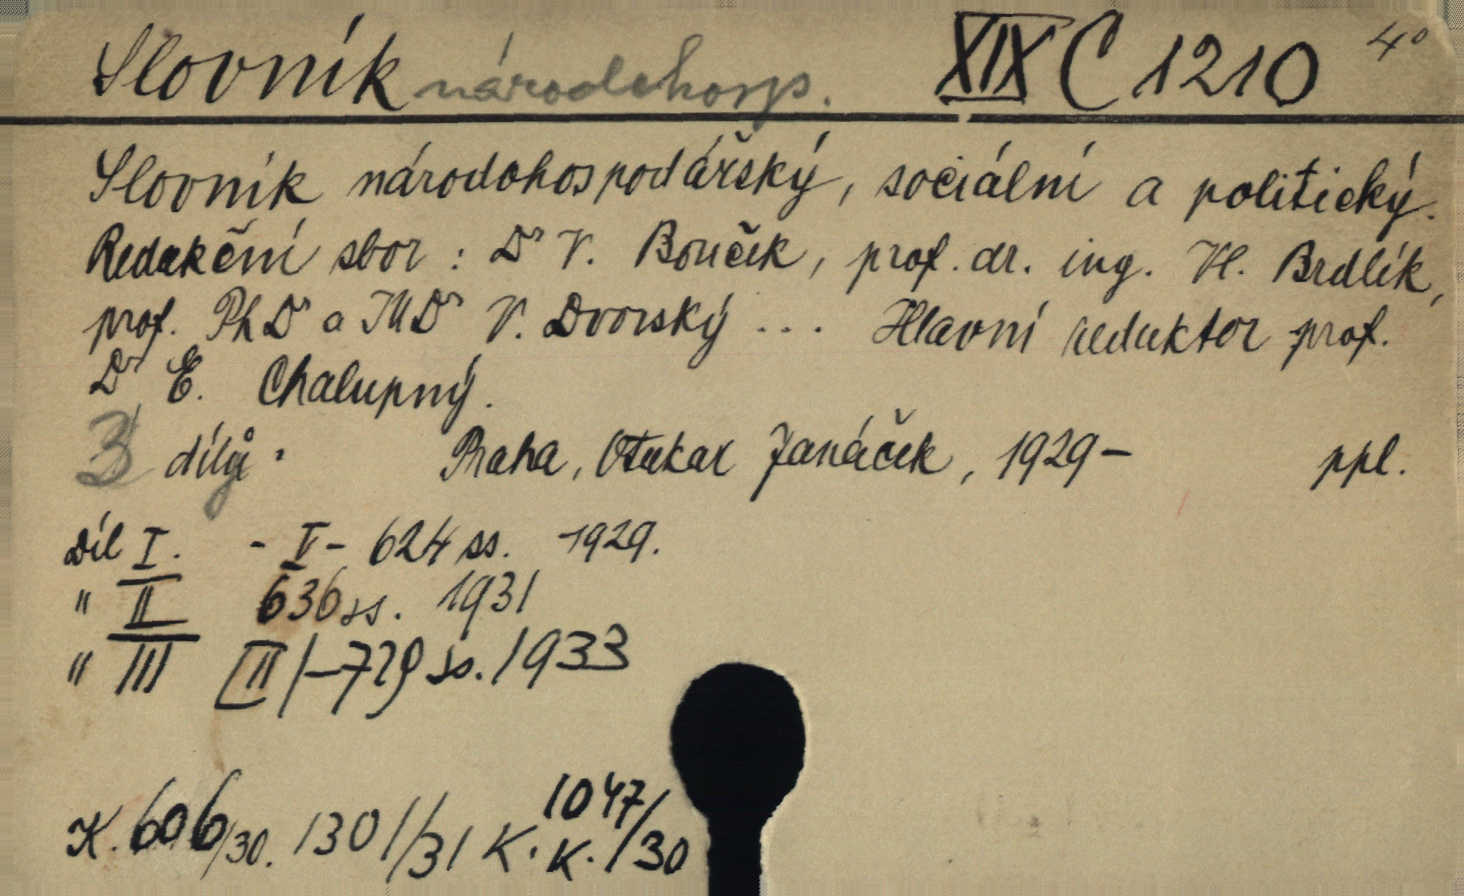 Slovník národohosp. XIX C 1210 4°
Slovník národohospodářský, sociální a politický.
Redakční sbor: Dr V. Bouček, prof. dr. ing. Vl. Brdlík,
prof. PhDr a JUDr V. Dvorský ... Hlavní redaktor prof.
Dr E. Chalupný.
3 díly. Praha, Otakar Janáček, 1929- ppl.
Díl I. - V - 624 ss. 1929.
" II 636 ss. 1931
" III [II] - 729 ss. 1933
K. 606/30. 1301/31 K. 1047/30
K.